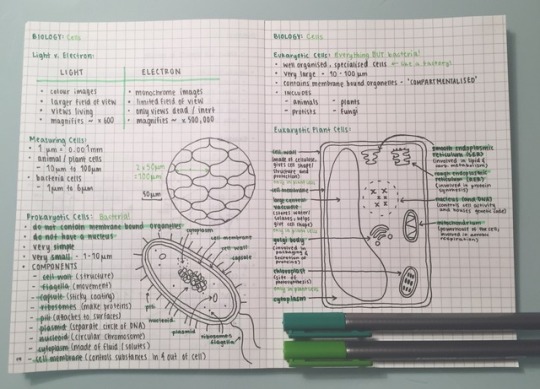 BIOLOGY: Cells
Light v. Electron:
LIGHT
ELECTRON
• colour images
• larger field of view
• views living
• magnifies ~ x 600
• monochrome images
• limited field of view
• only views dead / inert
• magnifies ~ x 500,000
Measuring Cells:
• 1 μm = 0.001mm
• animal / plant cells
- 10μm to 100μm
• bacteria cells
- 1μm to 6μm
50μm
Prokaryotic Cells: Bacteria!
• do not contain membrane bound organelles
• do not have a nucleus
• very simple
• very small - 1-10μm
• COMPONENTS
- cell wall (structure)
- flagella (movement)
- capsule (sticky coating)
- ribosomes (make proteins)
- pili (attaches to surfaces)
- plasmid (separate circle of DNA)
- nucleoid (circular chromosome)
- cytoplasm (made of fluid / solutes)
- cell membrane (controls substances in & out of cell)
cytoplasm
cell membrane
cell wall
capsule
pili
nucleoid
plasmid
ribosomes
flagella
BIOLOGY: Cells
Eukaryotic Cells: Everything BUT bacteria!
• well organised, specialised cells ← like a factory!
• very large - 10 - 100 μm
• contains membrane bound organelles - "COMPARTMENTALISED"
• INCLUDES
- animals - plants
- protists - fungi
Eukaryotic Plant Cells:
cell wall
(made of cellulose,
cell membrane
large central
vacuole
golgi body
(involved in
packaging &
secretion of
proteins)
chloroplast
(site of
photosynthesis)
cytoplasm
smooth endoplasmic
reticulum (SER)
(involved in lipid
rough endoplasmic
reticulum (RER)
(involved in protein
synthesis)
nucleus
(controls cell activity
and houses genetic code)
mitochondrion
(powerhouse of the cell,
involved in aerobic
respiration)